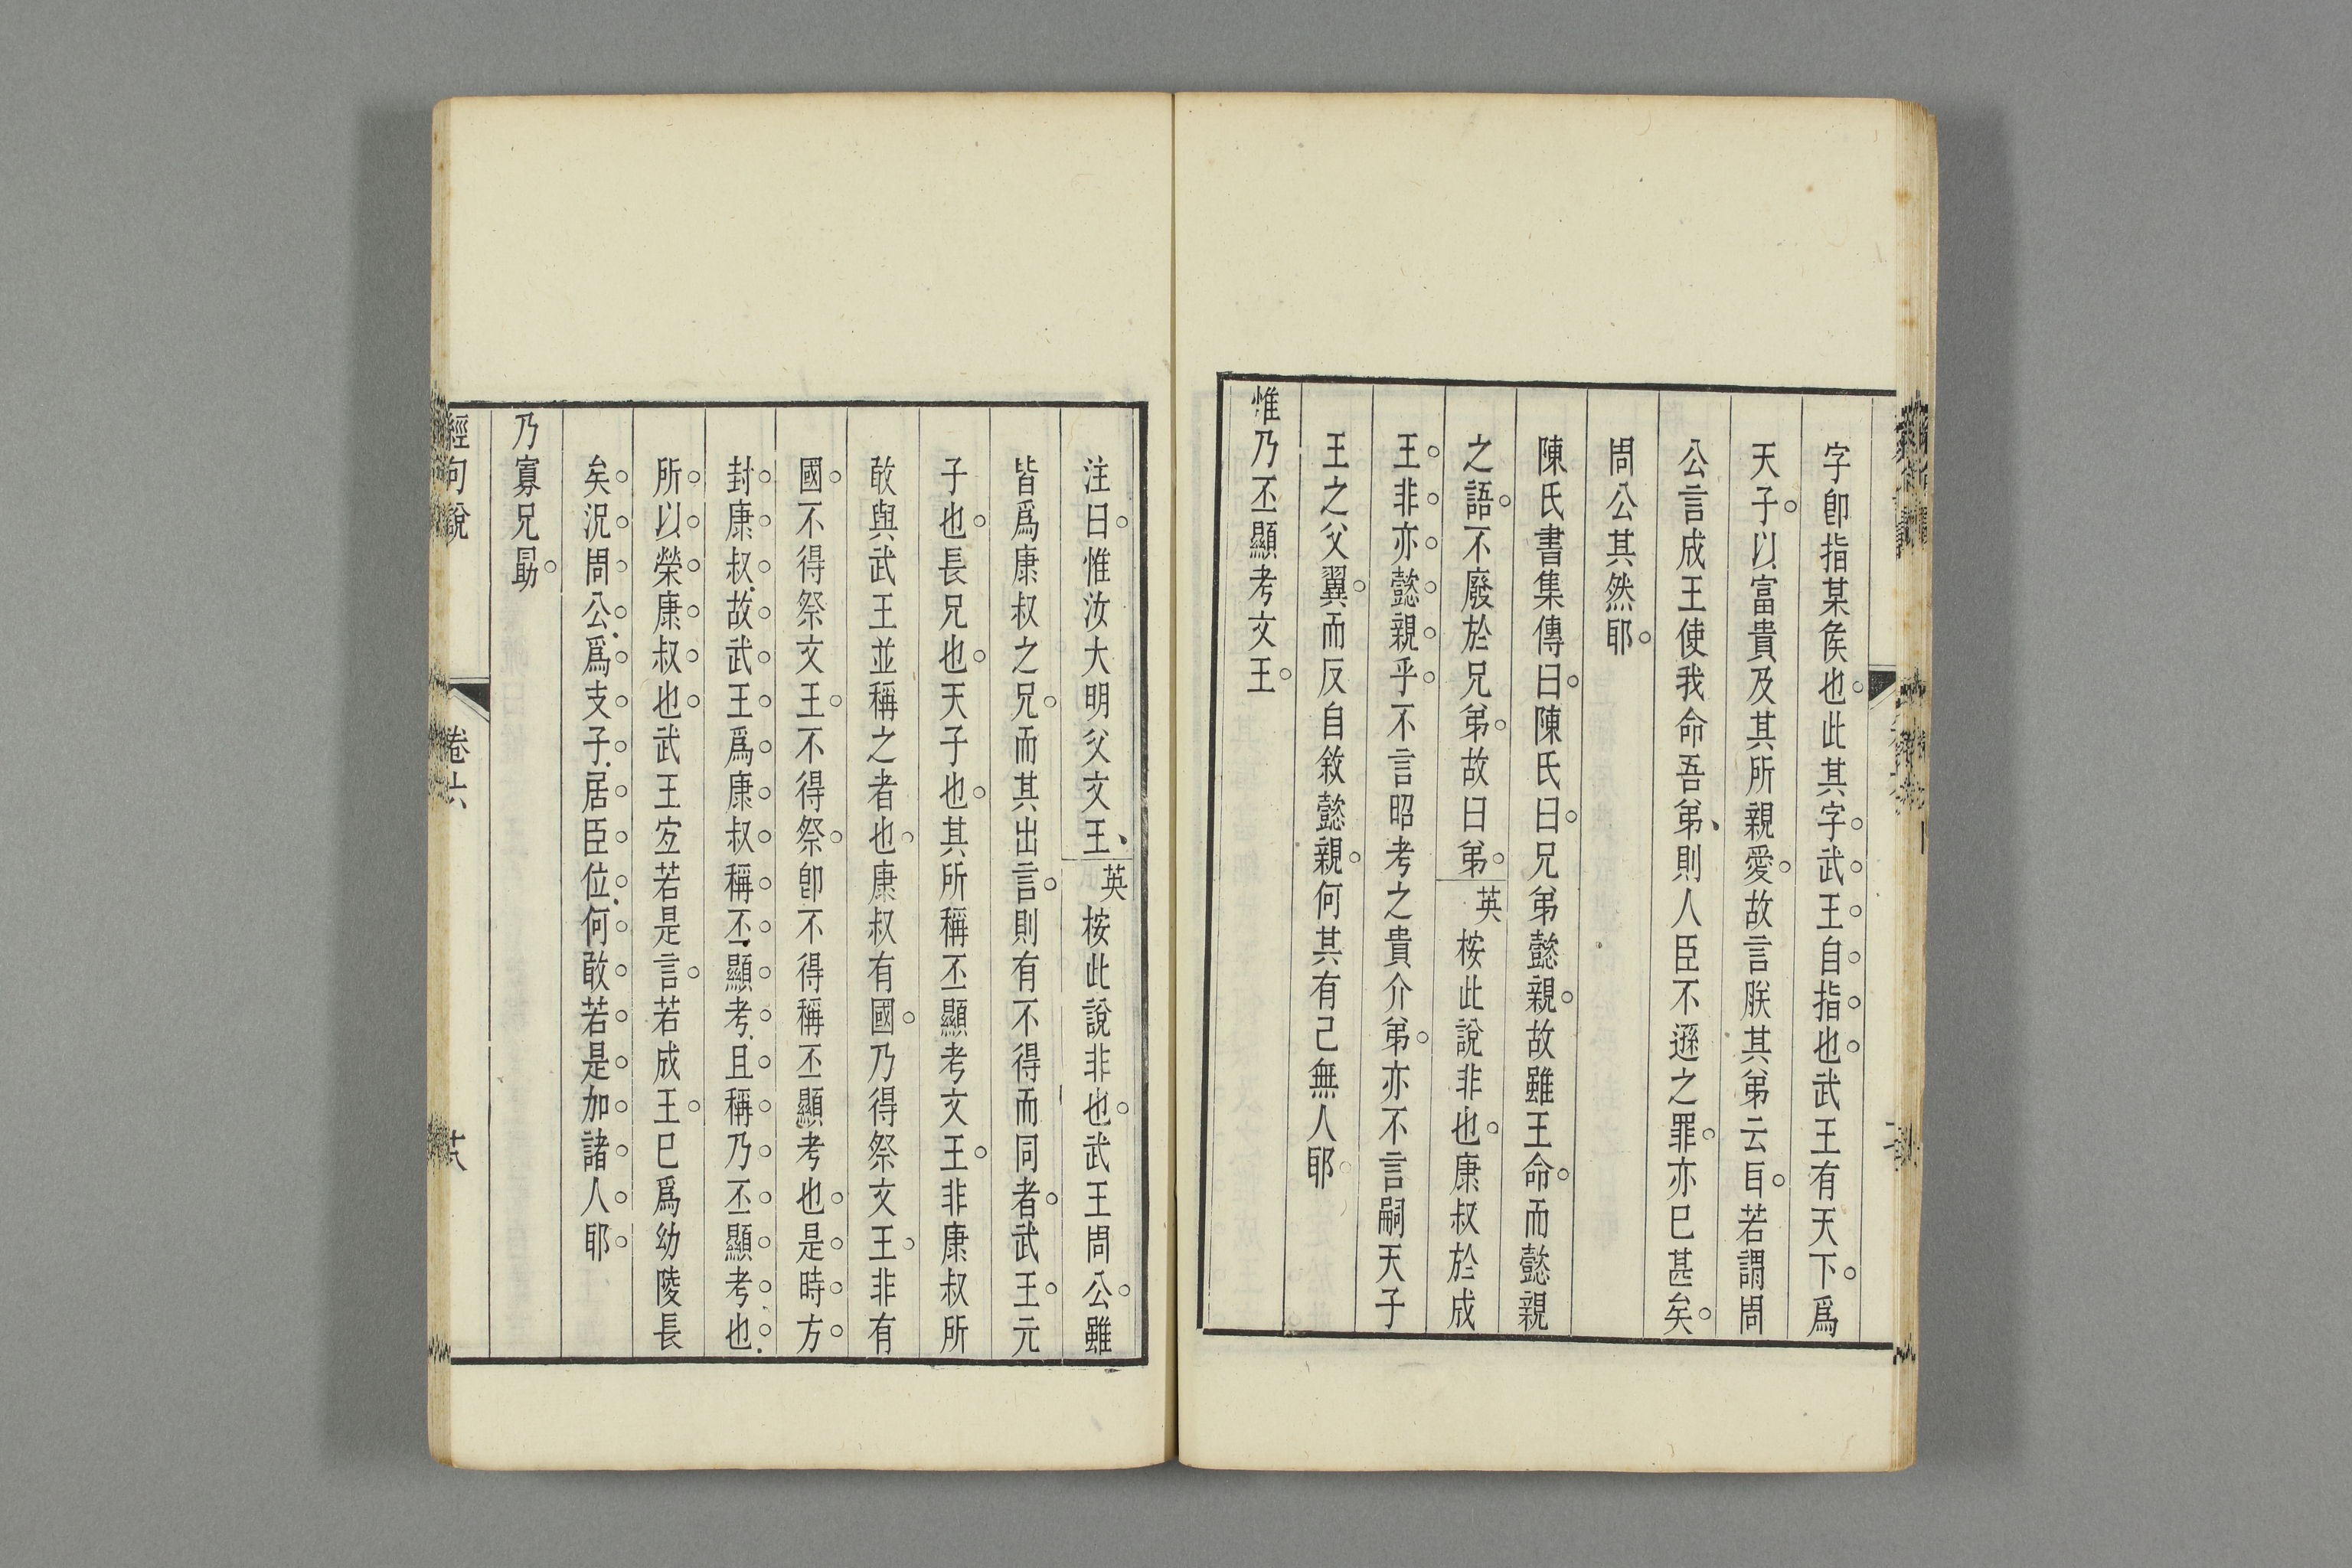 字卽指某矦也此其字武王自指也武王有天下爲
天子以富貴及其所親愛故言朕其弟云𦣞若謂周
公言成王使我命吾弟則人臣不遜之罪亦巳甚矣
周公其然耶
陳氏書集傳曰陳氏曰兄弟懿親故雖王命而懿親
之語不廢於兄弟故曰弟英桉此說非也康叔於成
王非亦懿親乎不言昭考之貴介弟亦不言嗣天子
王之父翼而反自敘懿親何其有己無人耶
惟乃丕顯考文王
注曰惟汝大明父文王英桉此說非也武王周公雖
皆爲康叔之兄而其出言則有不得而同者武王元
子也長兄也天子也其所稱丕顯考文王非康叔所
敢與武王並稱之者也康叔有國乃得祭文王非有
國不得祭文王不得祭卽不得稱丕顯考也是時方
封康叔故武王爲康叔稱丕顯考且稱乃丕顯考也
所以榮康叔也武王宐若是言若成王巳爲幼陵長
矣況周公爲支子居臣位何敢若是加諸人耶
乃寡兄勗
經句說 卷六 十八